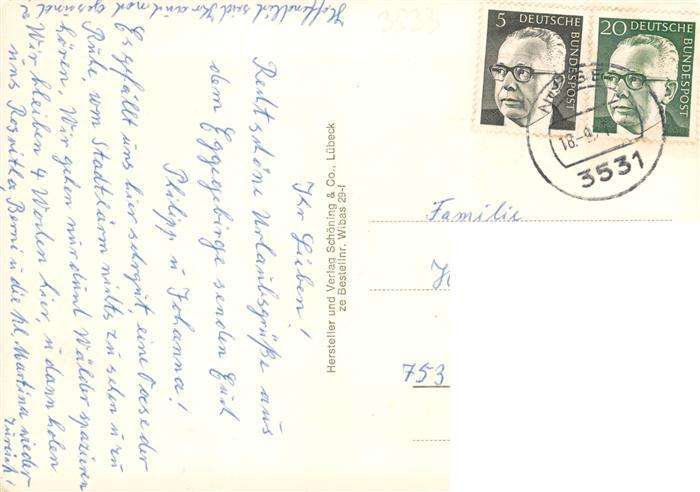 Hoffendlich seid Ihr auch noch gesund
Ihr Lieben!
Recht schöne Urlaubsgrüße aus
dem Eggegebirge senden Euch
Philipp u Johanna!
Es gefällt uns hier sehr gut, eine Oase der
Ruhe, vom Stadtlärm nichts zu sehen u zu
hören, Wir gehen nur durch Wälder spazieren
Wir bleiben 4 Wochen hier, u dann holen
uns Roswitha Bernd u die kl Martina wieder
zurück!
Hersteller und Verlag Schöning & Co., Lübeck
ze Bestellnr. Wibas 29-I
3533
5 DEUTSCHE BUNDESPOST
20 DEUTSCHE BUNDESPOST
18.-9.
3531
Familie
753